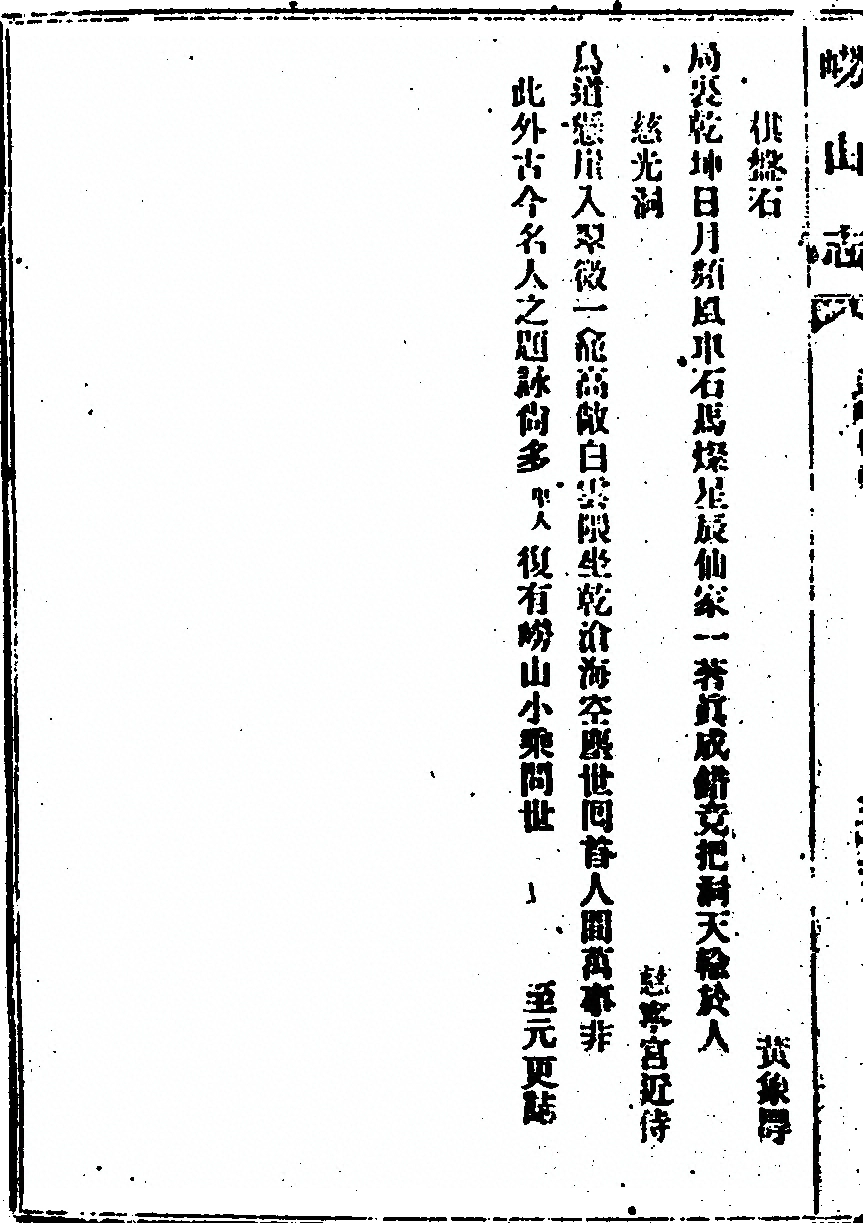 嶗山志
棋盤石　黃象冔
局裏乾坤日月頻風車石馬燦星辰仙家一著眞成錯竟把洞天輸於人
慈光洞　慈寧宮近侍
鳥道懸崖入翠微一龕高敞白雲隈坐乾滄海空塵世囘首人間萬事非
此外古今名人之題詠尙多 人 復有嶗山小乘問世　至元更誌